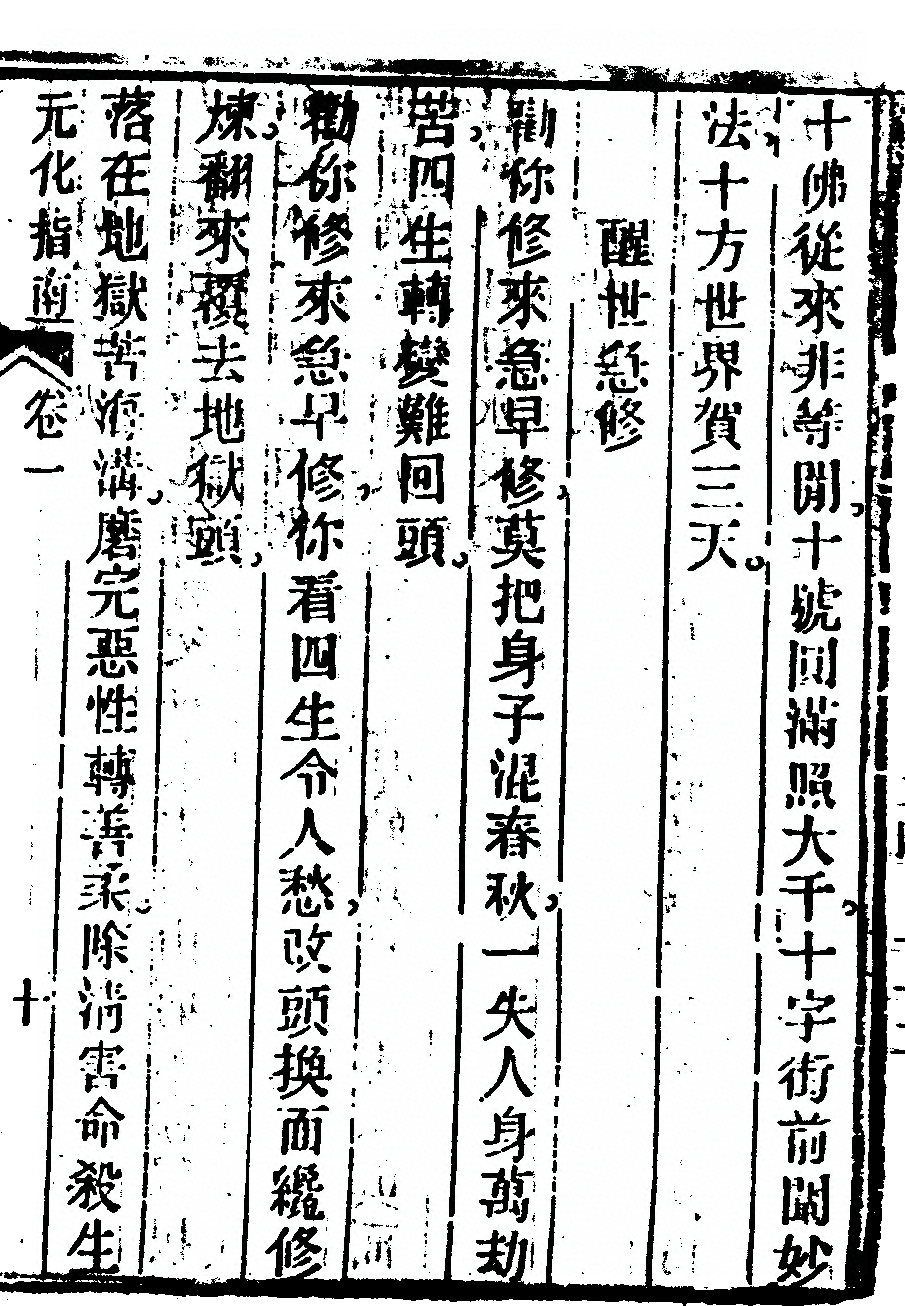 十佛從來非等閒。十號圓滿照大千。十字街前聞妙
法。十方世界賀三天。
醒世急修
勸你修來急早修。莫把身子混春秋。一失人身萬劫
苦。四生轉變難回頭。
勸你修來急早修。你看四生令人愁。改頭換面纔修
煉。翻來覆去地獄頭。
落在地獄苦海溝。磨完惡性轉善柔。除淸害命殺生
元化指南 卷一 十